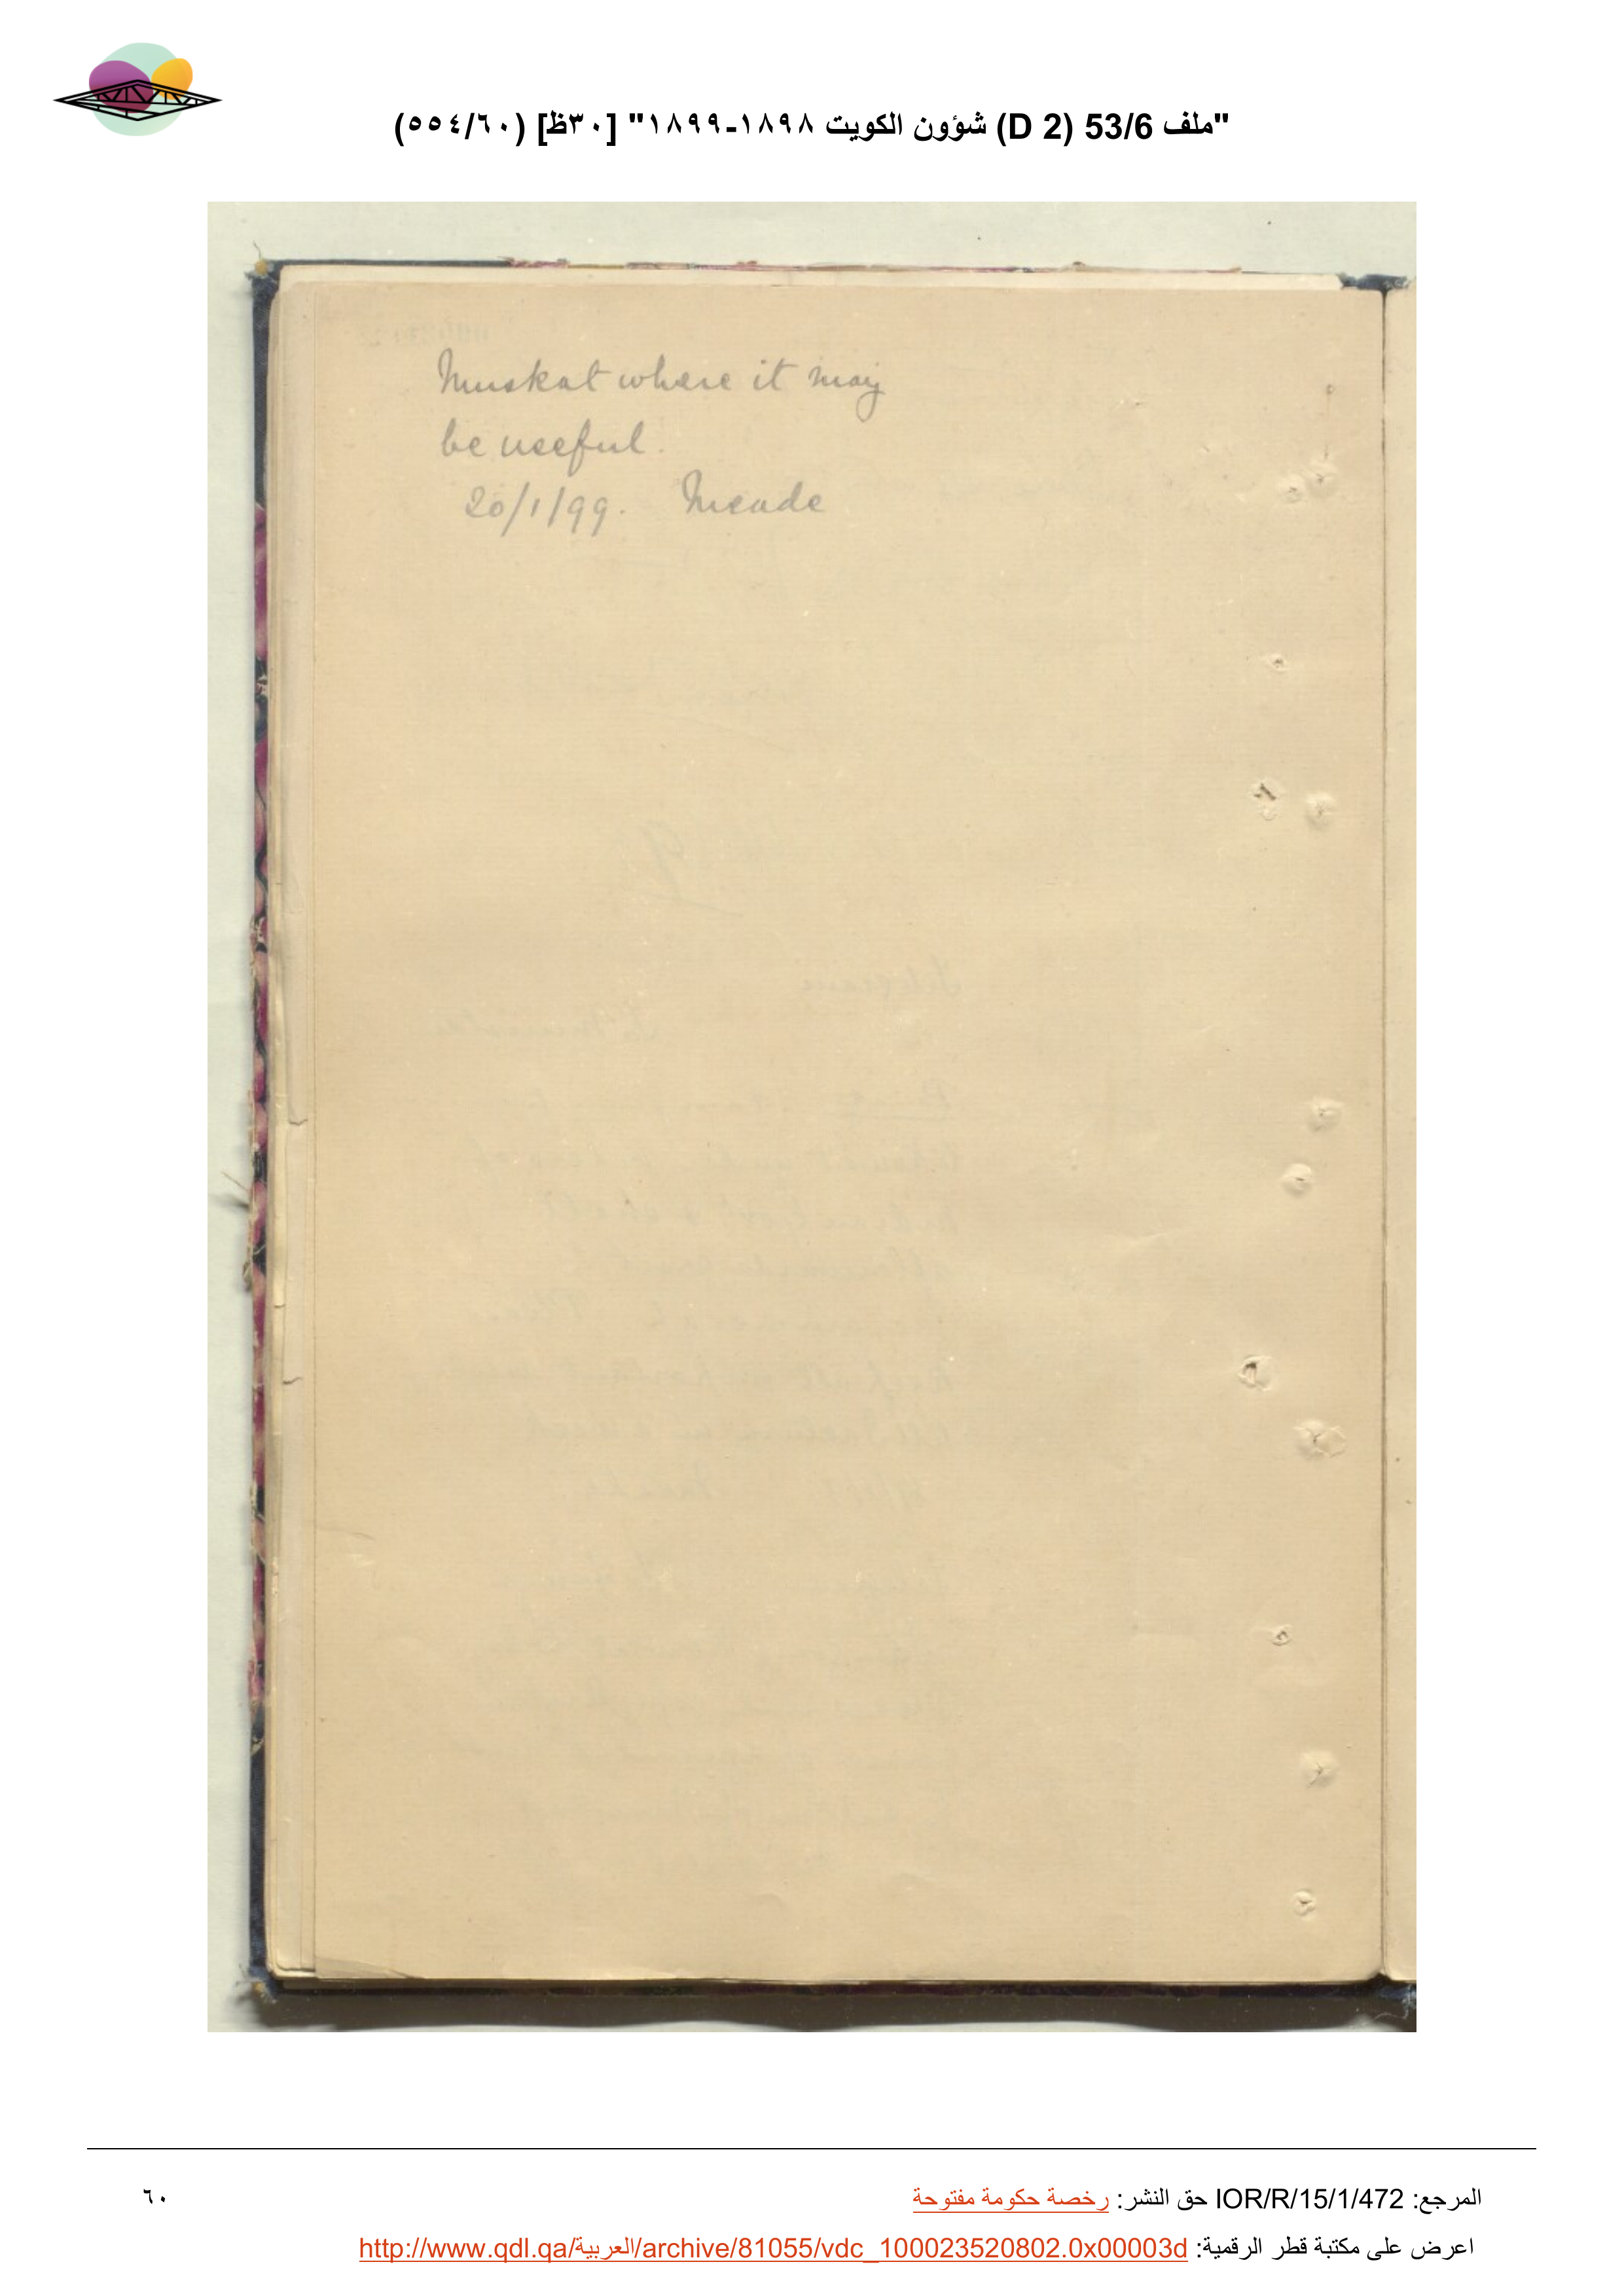 "ملف 53/6 (D 2) شؤون الكويت ١٨٩٨-١٨٩٩" [٣٠ظ] (٥٥٤/٦٠)
Muskat where it may
be useful.
20/1/99. Meade
المرجع: IOR/R/15/1/472 حق النشر: رخصة حكومة مفتوحة
٦٠
اعرض على مكتبة قطر الرقمية: http://www.qdl.qa/العربية/archive/81055/vdc_100023520802.0x00003d